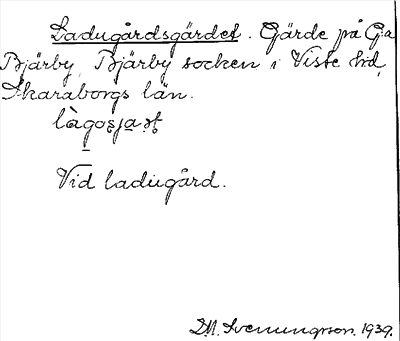 Ladugårdsgärdet. Gärde på G:a
Bjärby, Bjärby socken i Viste hd,
Skaraborgs län.
Vid ladugård.
D.M. Svenungsson. 1939.